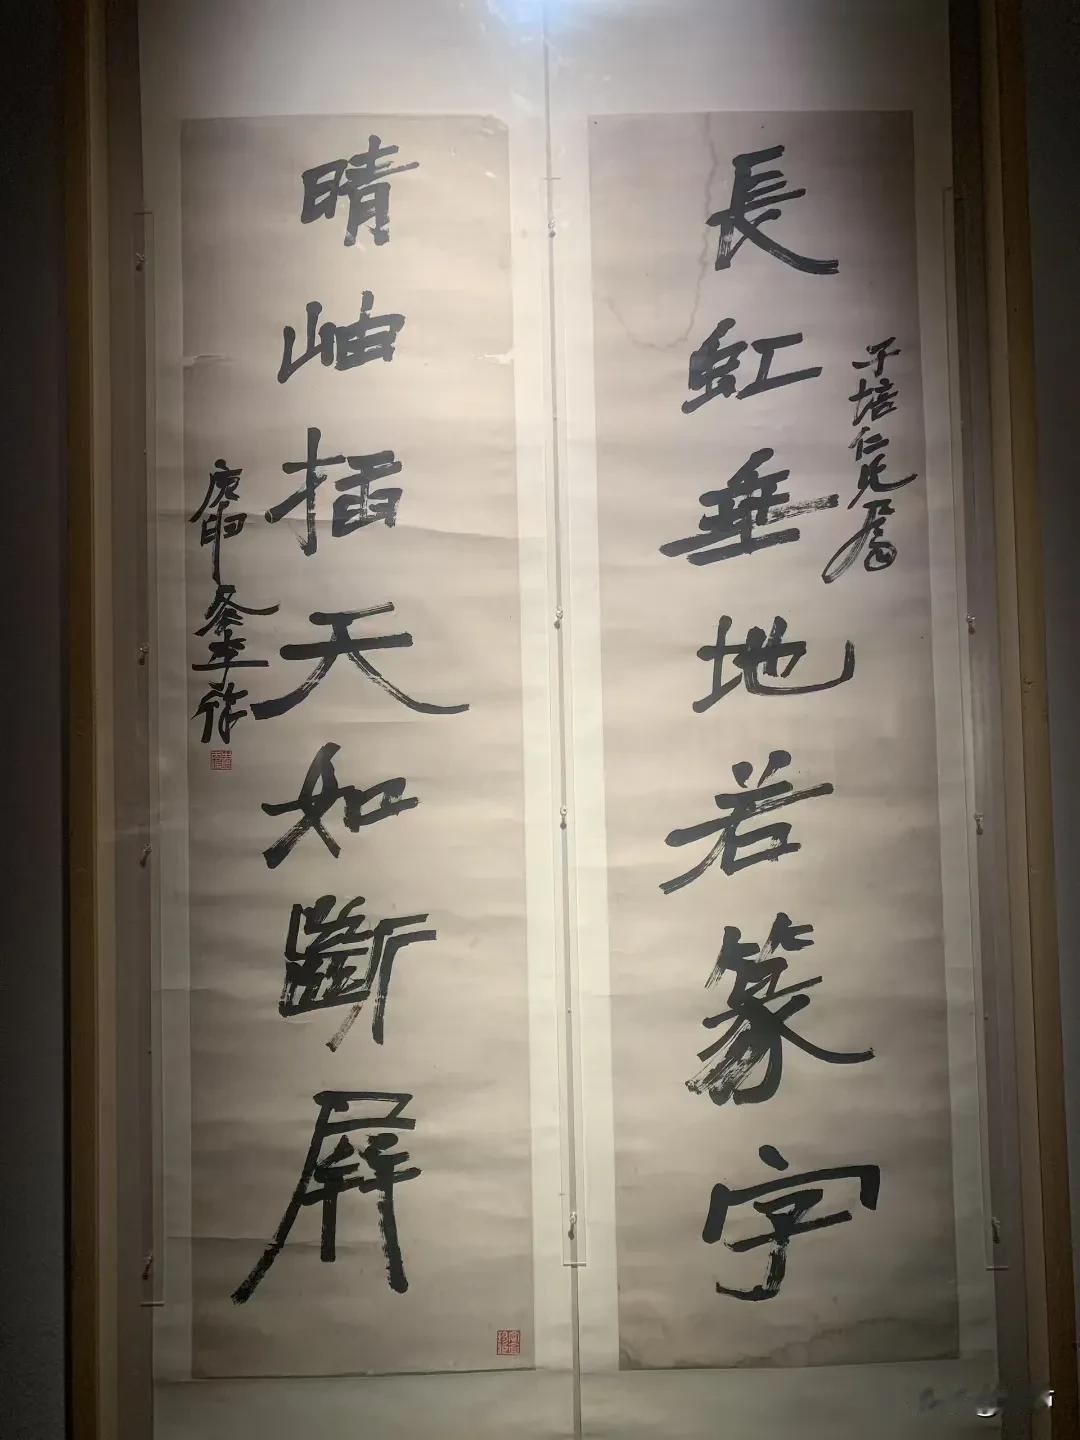 長虹垂地若篆字
子培仁兄屬
晴岫插天如斷屏
庚申冬李詳